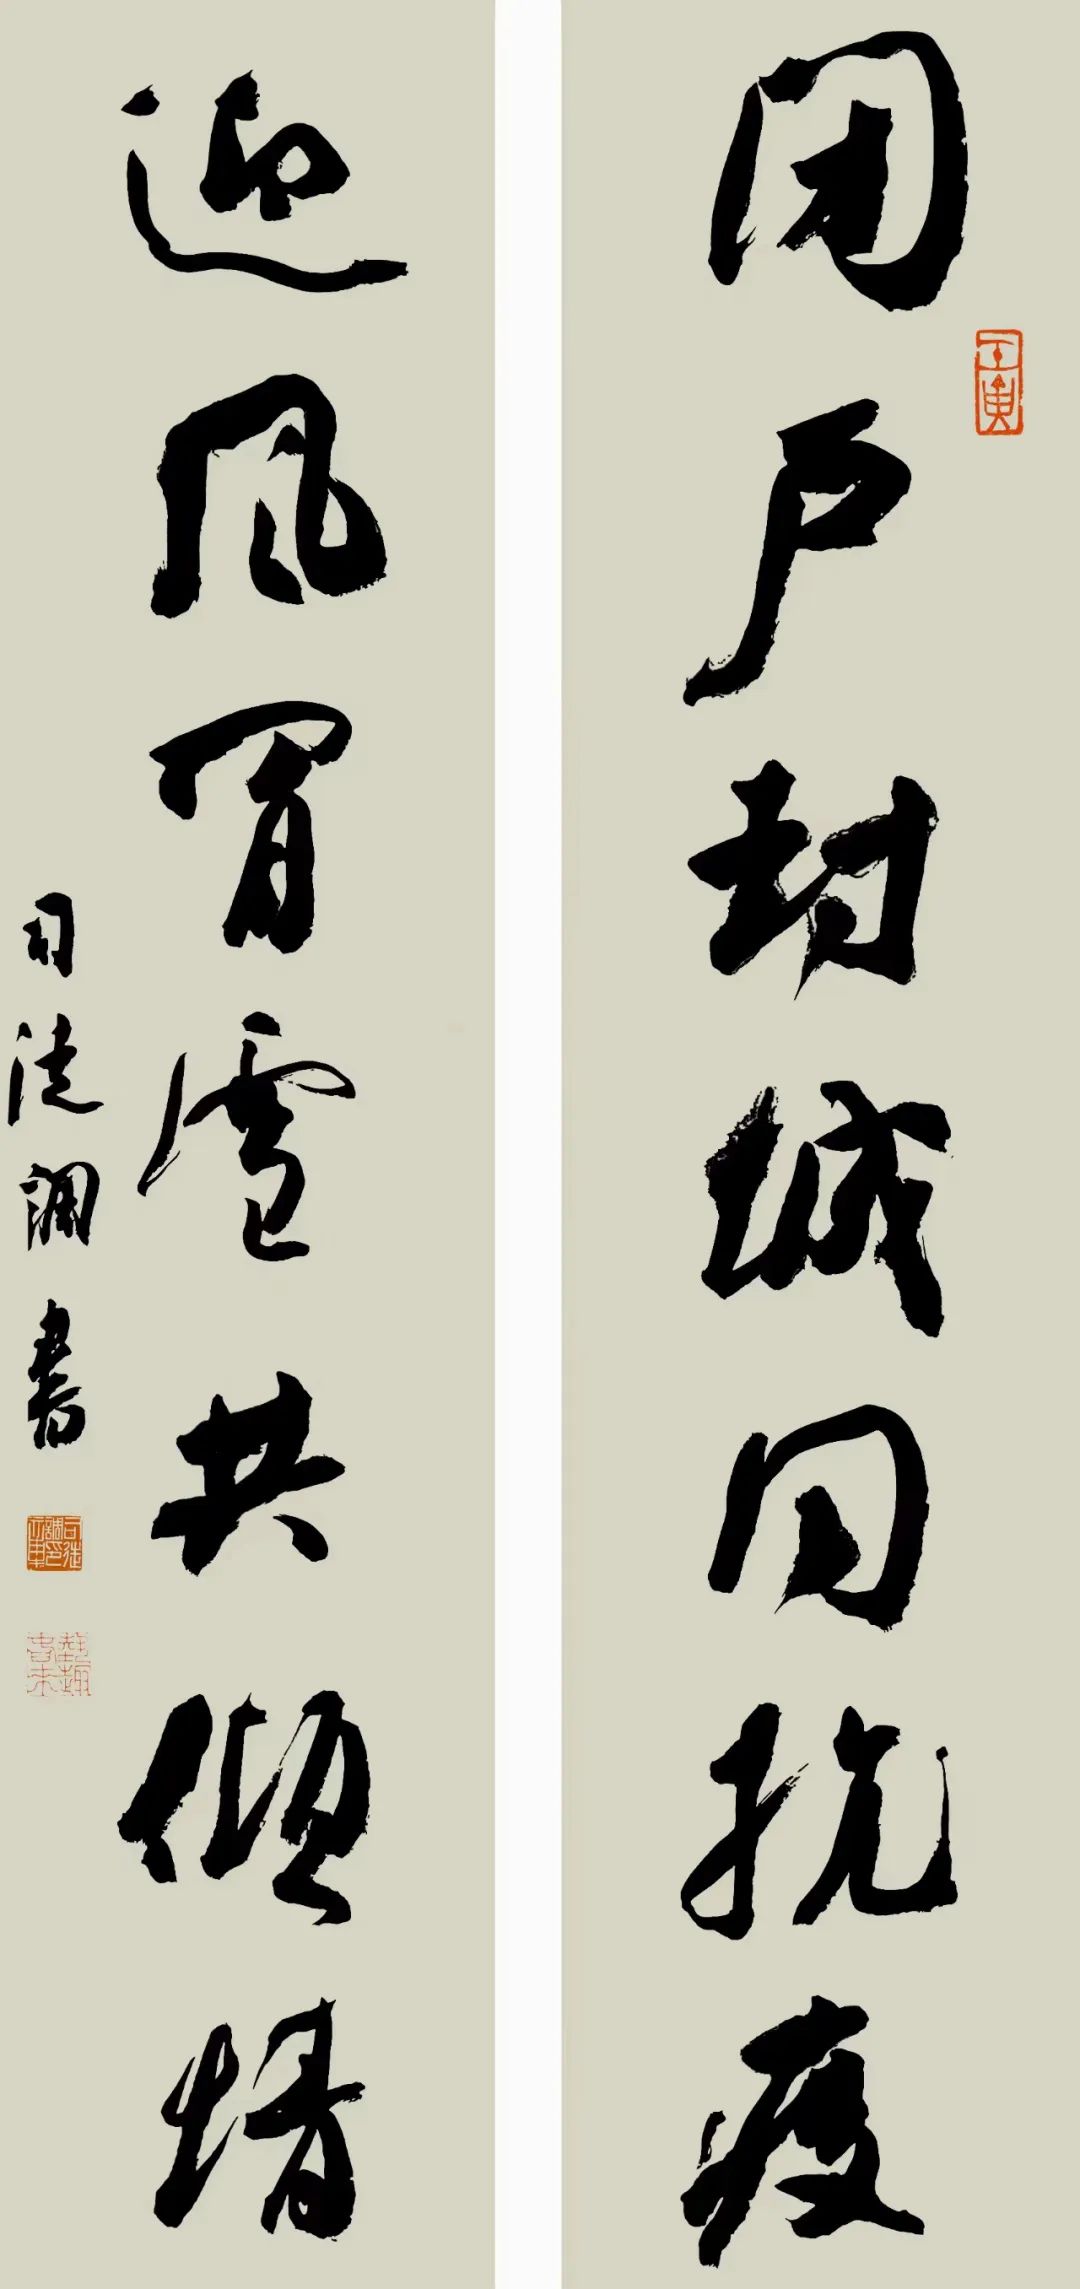 闭户封城同抗疫
壬寅
迎风冒雪共倾情
司徒调书